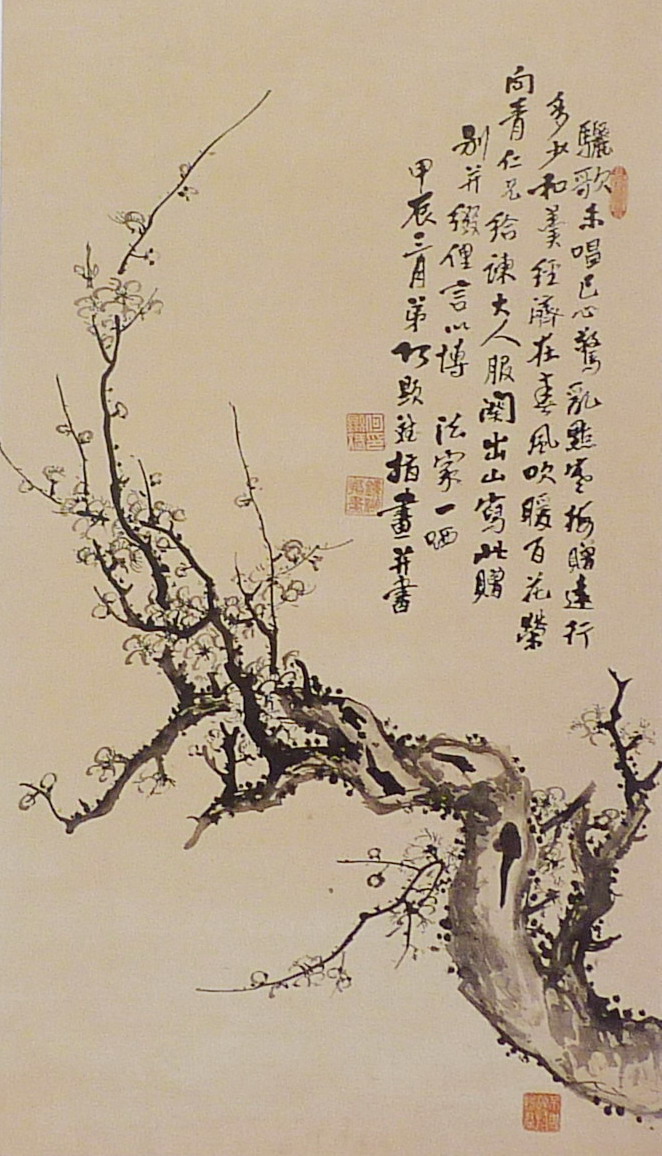 驪歌未唱已心驚亂點寒梅贈遠行
多少和羹經濟在春風吹暖百花榮
向青仁兄給諫大人服闋出山寫此贈
別并綴俚言以博 法家一哂
甲辰三月弟 顯 指畫并書